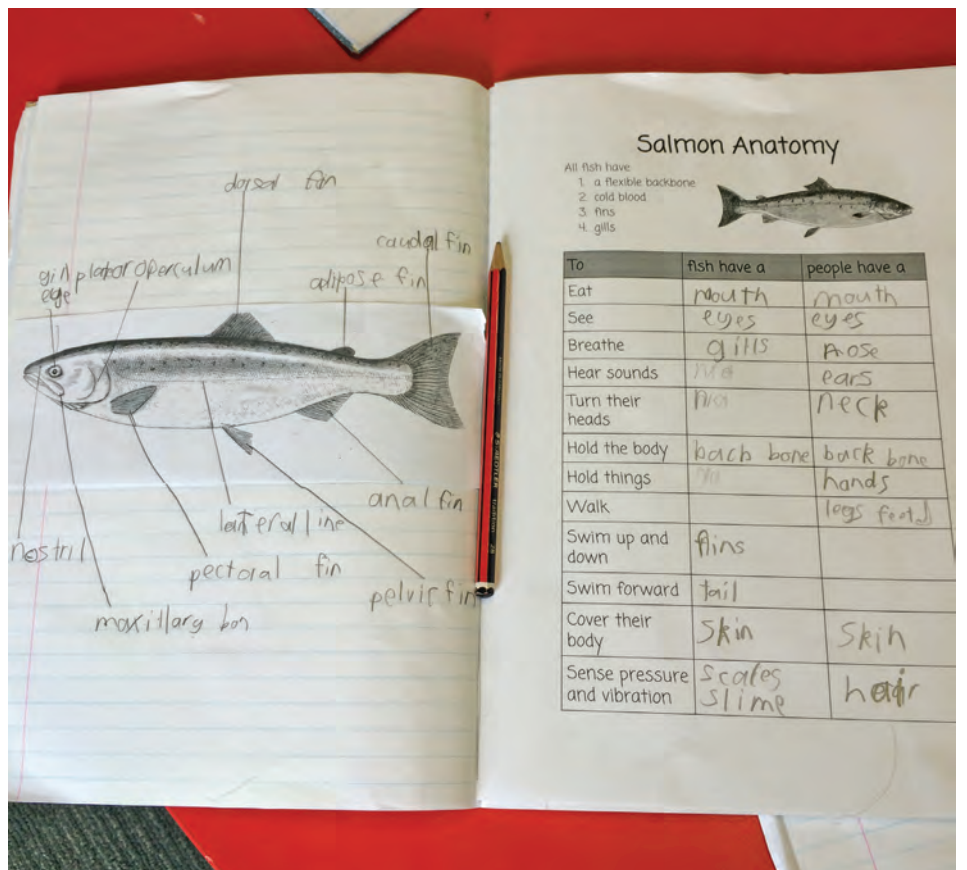 dorsal fin
caudal fin
gill plate or operculum
eye
adipose fin
anal fin
lateral line
nostril
pectoral fin
pelvic fin
maxillary bon
STAEDTLER tradition
Salmon Anatomy
All fish have
1. a flexible backbone
2. cold blood
3. fins
4. gills
To fish have a people have a
Eat mouth mouth
See eyes eyes
Breathe gills nose
Hear sounds ears
Turn their neck
heads
Hold the body back bone back bone
Hold things hands
Walk legs
Swim up and fins
down
Swim forward tail
Cover their skin skin
body
Sense pressure scales hair
and vibration slime